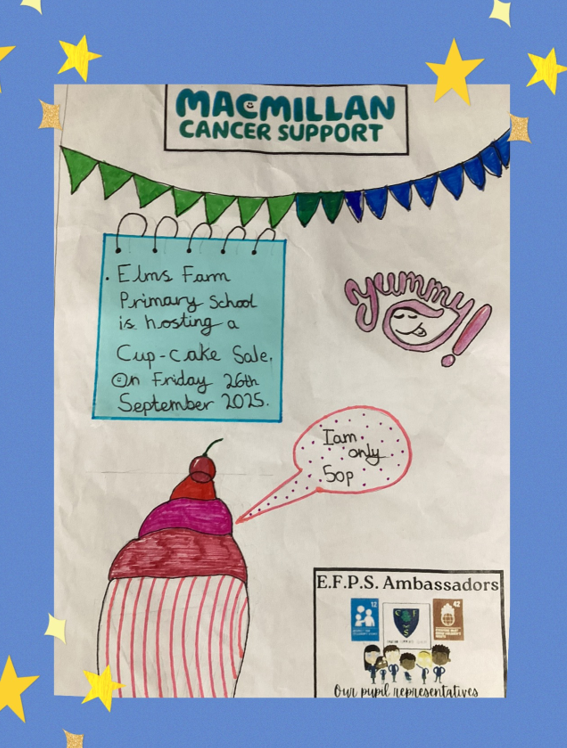 MACMILLAN
CANCER SUPPORT
. Elms Farm
Primary School
is hosting a
Cup-cake Sale,
On Friday 26th
September 2025.
yummy!
I am
only
50p
E.F.P.S. Ambassadors
12
42
Our pupil representatives